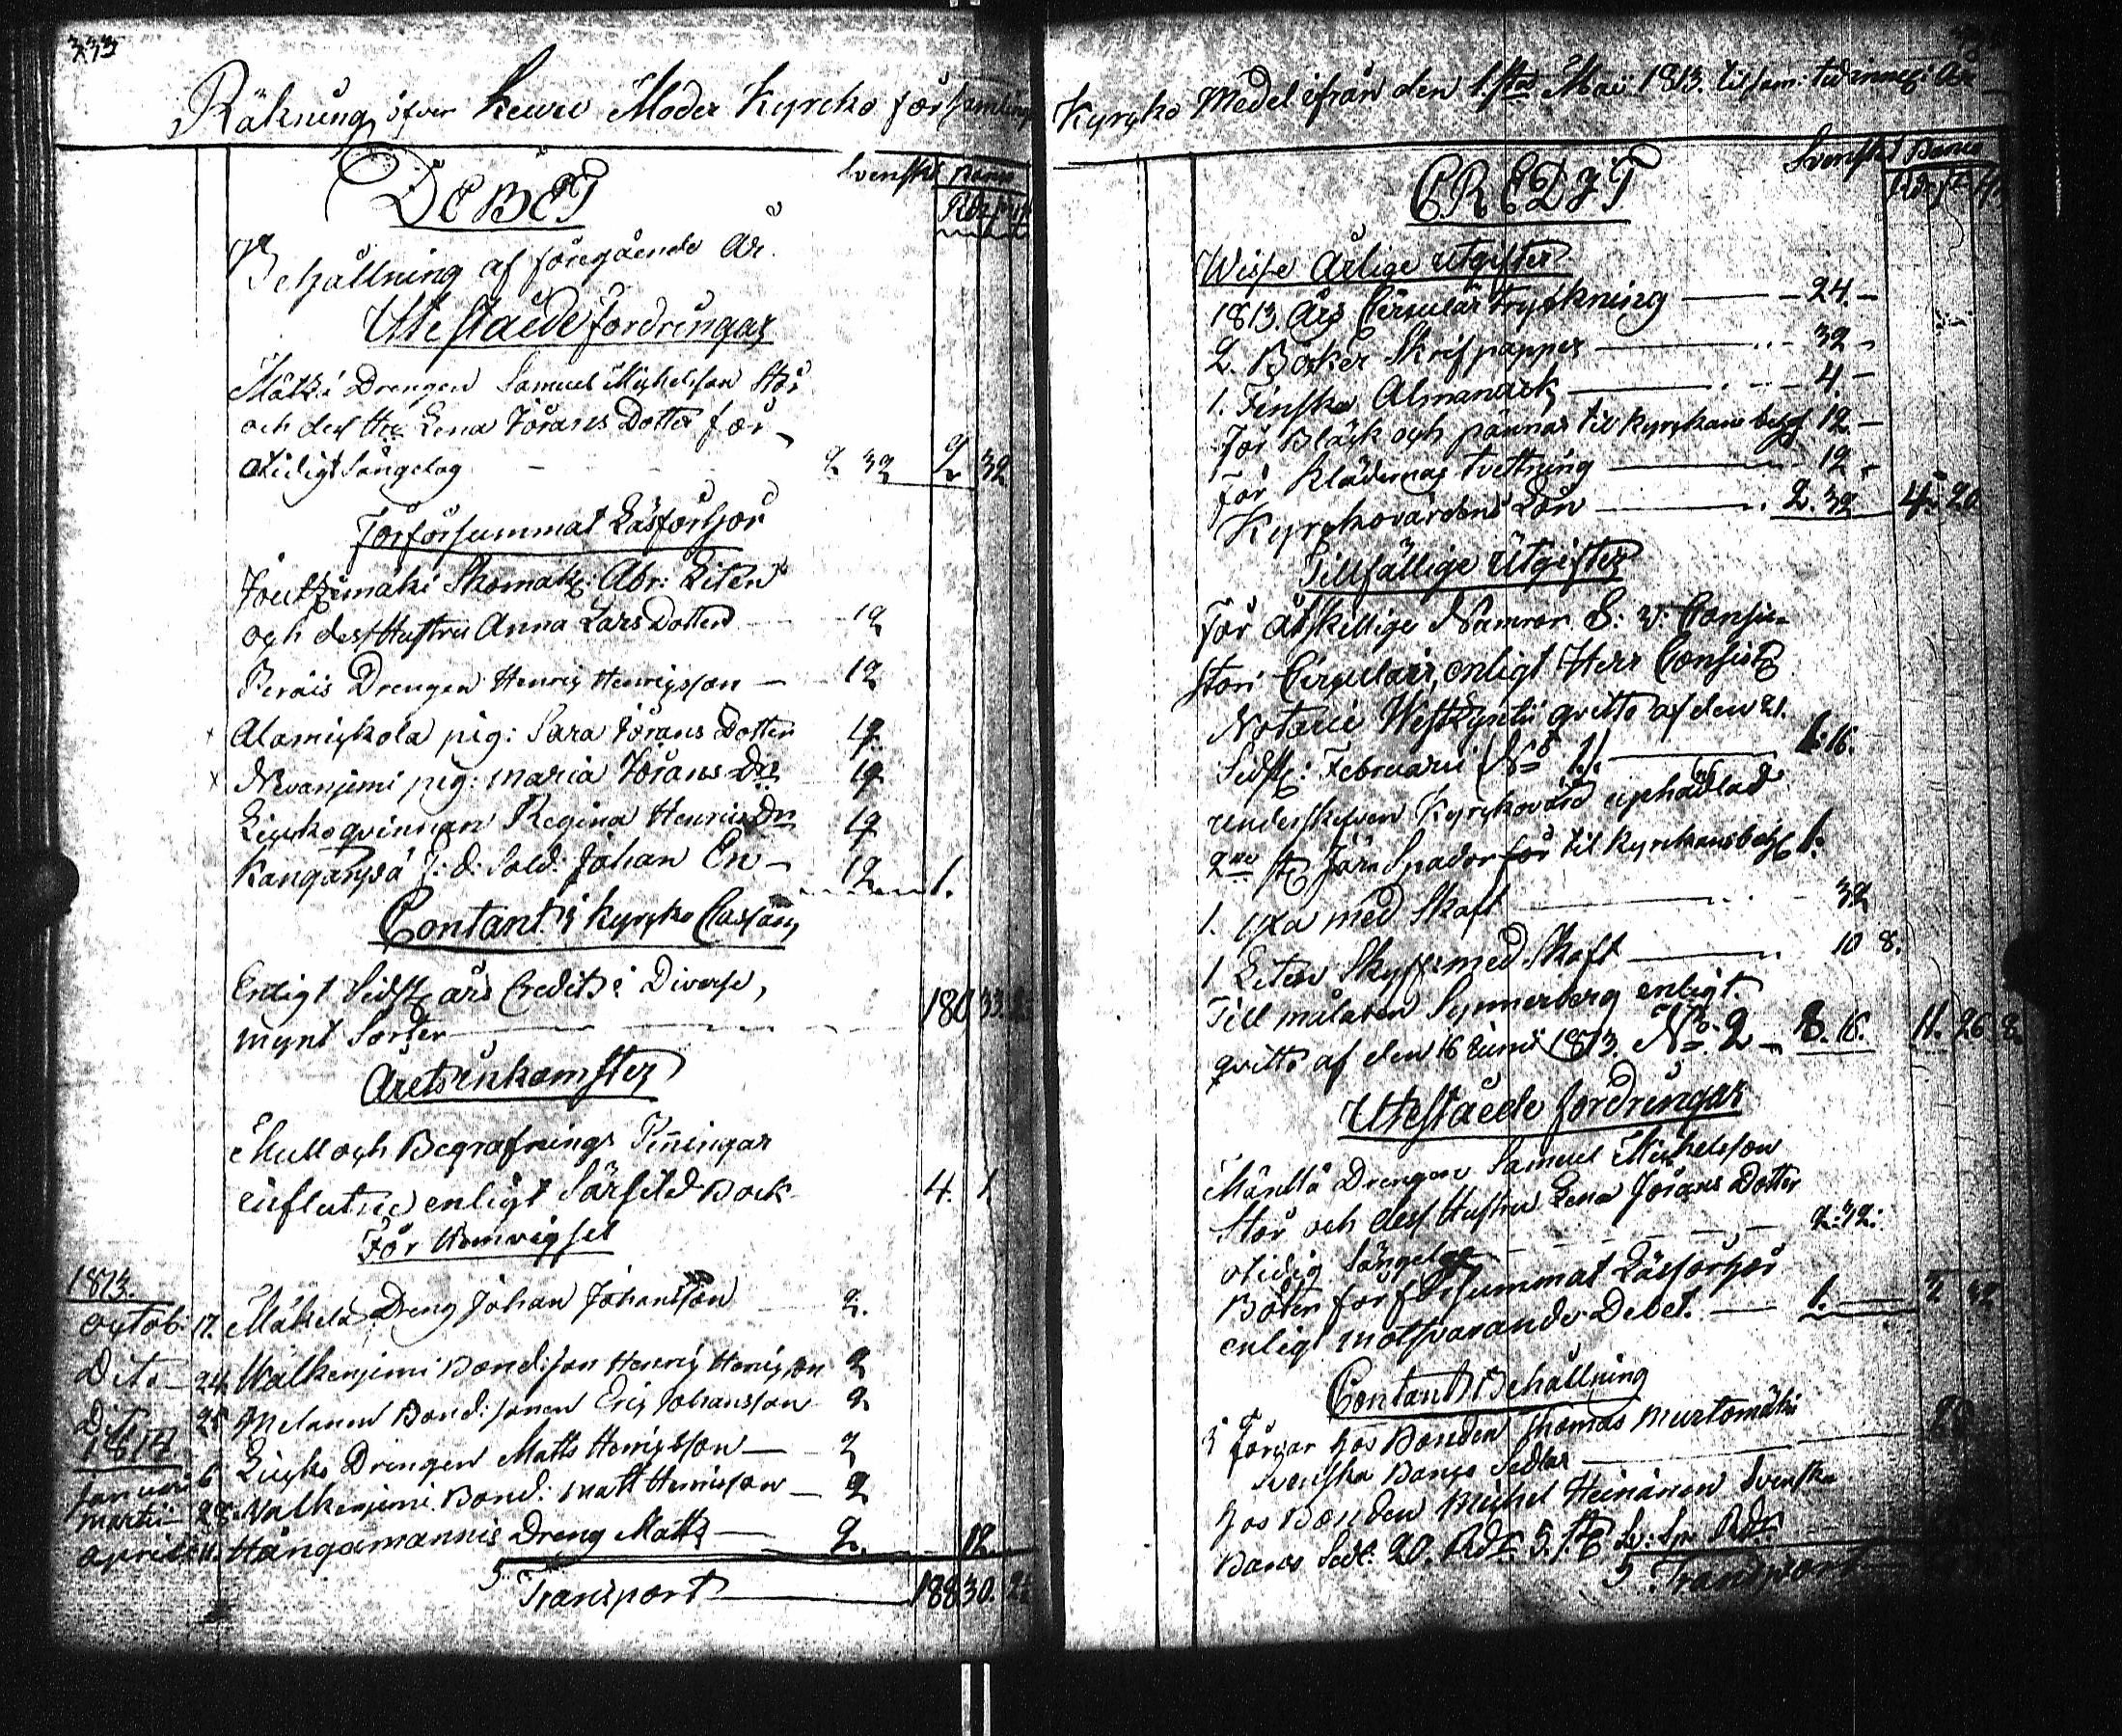 333
Räkning öfver Keuru Moder Kyrcko församlings
DEBET
Svenskt Banco
Rdr
Behållning af föregående År.
Utestående fordringar
Drengen Samuel Michelsson Stor
och dess Hru Lena Jörans Dotter för
otidigt Sängelag 2 32 2 32
För försummat Läsförhör
Skomak: Abr: Liten
och dess Hustru Anna Lars Dotter 12
Drengen Henric Henricsson — 12
Alamickola pig: Sara Jörans Dotter 12
pig: Maria Jörans Dr 12
Liucko qvinnan Regina Henrics Dr 12
Sold: Johan En — 12 1.
Contant i Kyrcko Cassan
Enligt Sidst års Credit i Diverse
mynt Sorter 180 33
Årets inkomster
Mull och Begrafnings Peningar
influtne enligt Särskild Bock 4. 1
För Hemvigsel
1813.
October 17. Mäkelä Dreng Johan Johansson 2.
Dito 24 Walkenjemi Bond: son Henric Henricsson 2
Dito 25 Bond: sonen Eric Johansson 2
1814
Januari 6 Liucko Drengen Matts Henricsson — 2
Martii 28. Walkenjemi Bond: Matt Henricsson — 2
April 11. Hångamannis Dreng Matts — 2. 12
Transport 188 30.
Kyrcko Medel ifrån den 1sta Maii 1813. til sam: tid År
CREDIT
Svenskt Banco
Rdr
Wisse Årlige Utgifter
1813. Års Circulair tryckning — 24 —
2. Böcker Skrifpapper — 32 —
1. Finska Almanack — 4. —
För Bläck och pännor til Kyrckans behof 12 —
För Klädernas tvettning — 12
Kyrckovärdens Lön — 2. 32 4 20
Tillfällige Utgifter
För åtskillige Namror S: v: Consi-
stori Circulair, enligt Herr Consist
Notarie qvitto af den 21.
Sidst: Februarii No 1. — 1: 16.
underskrefven Kyrckovärd uphandlad
2ne st Järn Spador för til Kyrckans behof 1:
1. yxa med Skaft 32
1 Liten med Skaft — 10 8.
Till målaren Synnerberg enligt
qvitto af den 16 Junii 1813. No 2 — 8. 16. 11. 26 8
Utestående fordringar
Drengen Samuel Michelsson
Stor och dess Hustru Lena Jörans Dotter
otidig Sängelag 2: 32:
Böter för försummat Läsförhör
enligt motsvarande Debet. — 1. — 3 32
Contant Behållning
I förvar hos Bonden Thomas Murtomäki
Svenska Banco Sedlar
hos Bonden Michel Heinänen Svenska
Banco Sedl: 20. Rdr. 5. st
Transport